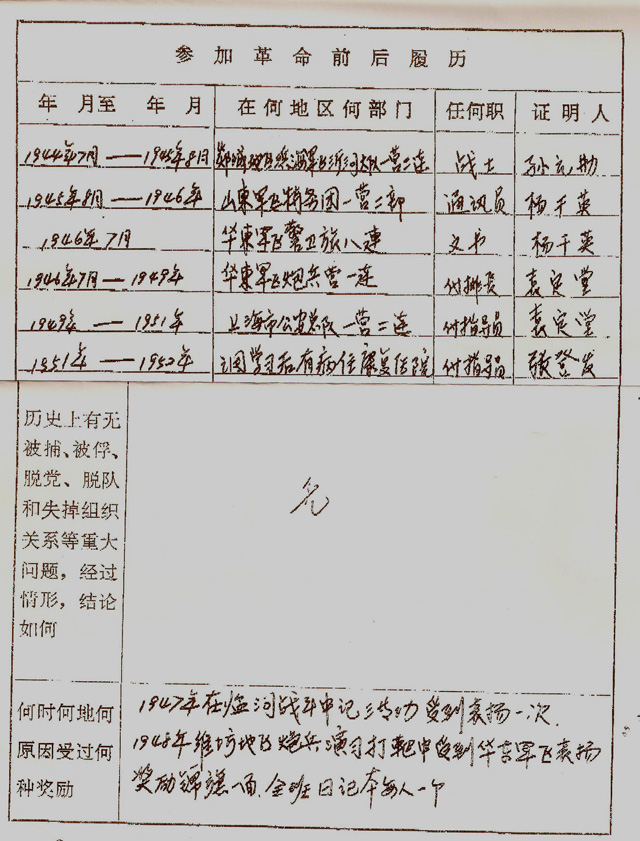 参加革命前后履历
年 月至 年 月 在何地区何部门 任何职 证明人
1944年7月——1945年8月 军区沂河大队一营二连 战士 孙
1945年8月——1946年 山东军区特务团一营二部 通讯员 杨千英
1946年7月 华东军区警卫旅八连 文书 杨千英
1946年7月——1949年 华东军区炮兵营一连 付排长 袁定堂
1949年——1951年 上海市公安总队一营二连 付指导员 袁定堂
1951年——1952年 调学习后有病住康复医院 付指导员 张登发
历史上有无
被捕、被俘、
脱党、脱队
和失掉组织
关系等重大
问题，经过
情形，结论
如何
无
何时何地何
原因受过何
种奖励
1947年在临河战斗中记三等功 受到表扬一次.
1948年潍坊地区炮兵演习打靶中受到华东军区表扬
奖励锦旗一面.全班日记本每人一个